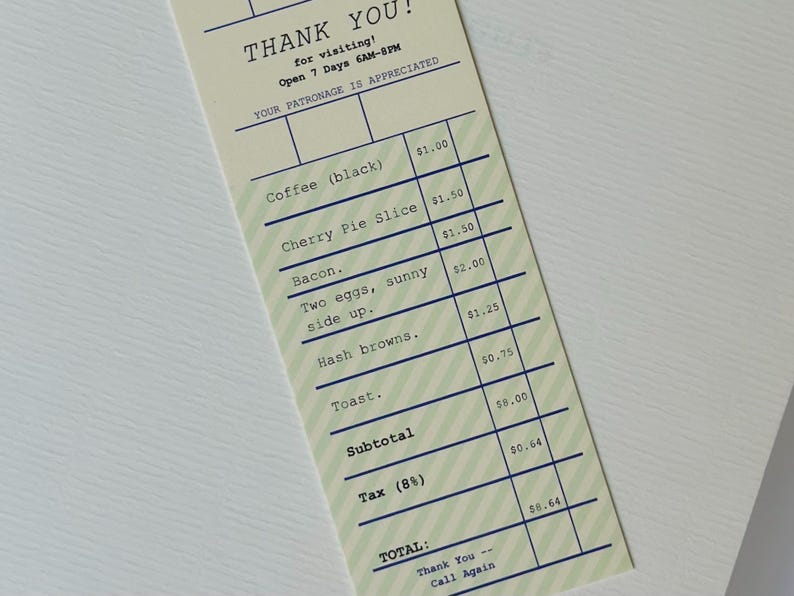 THANK YOU!
for visiting!
Open 7 Days 6AM-8PM
YOUR PATRONAGE IS APPRECIATED
Coffee (black) $1.00
Cherry Pie Slice $1.50
Bacon. $1.50
Two eggs, sunny $2.00
side up.
Hash browns. $1.25
Toast. $0.75
Subtotal $8.00
Tax (8%) $0.64
TOTAL: $8.64
Thank You --
Call Again